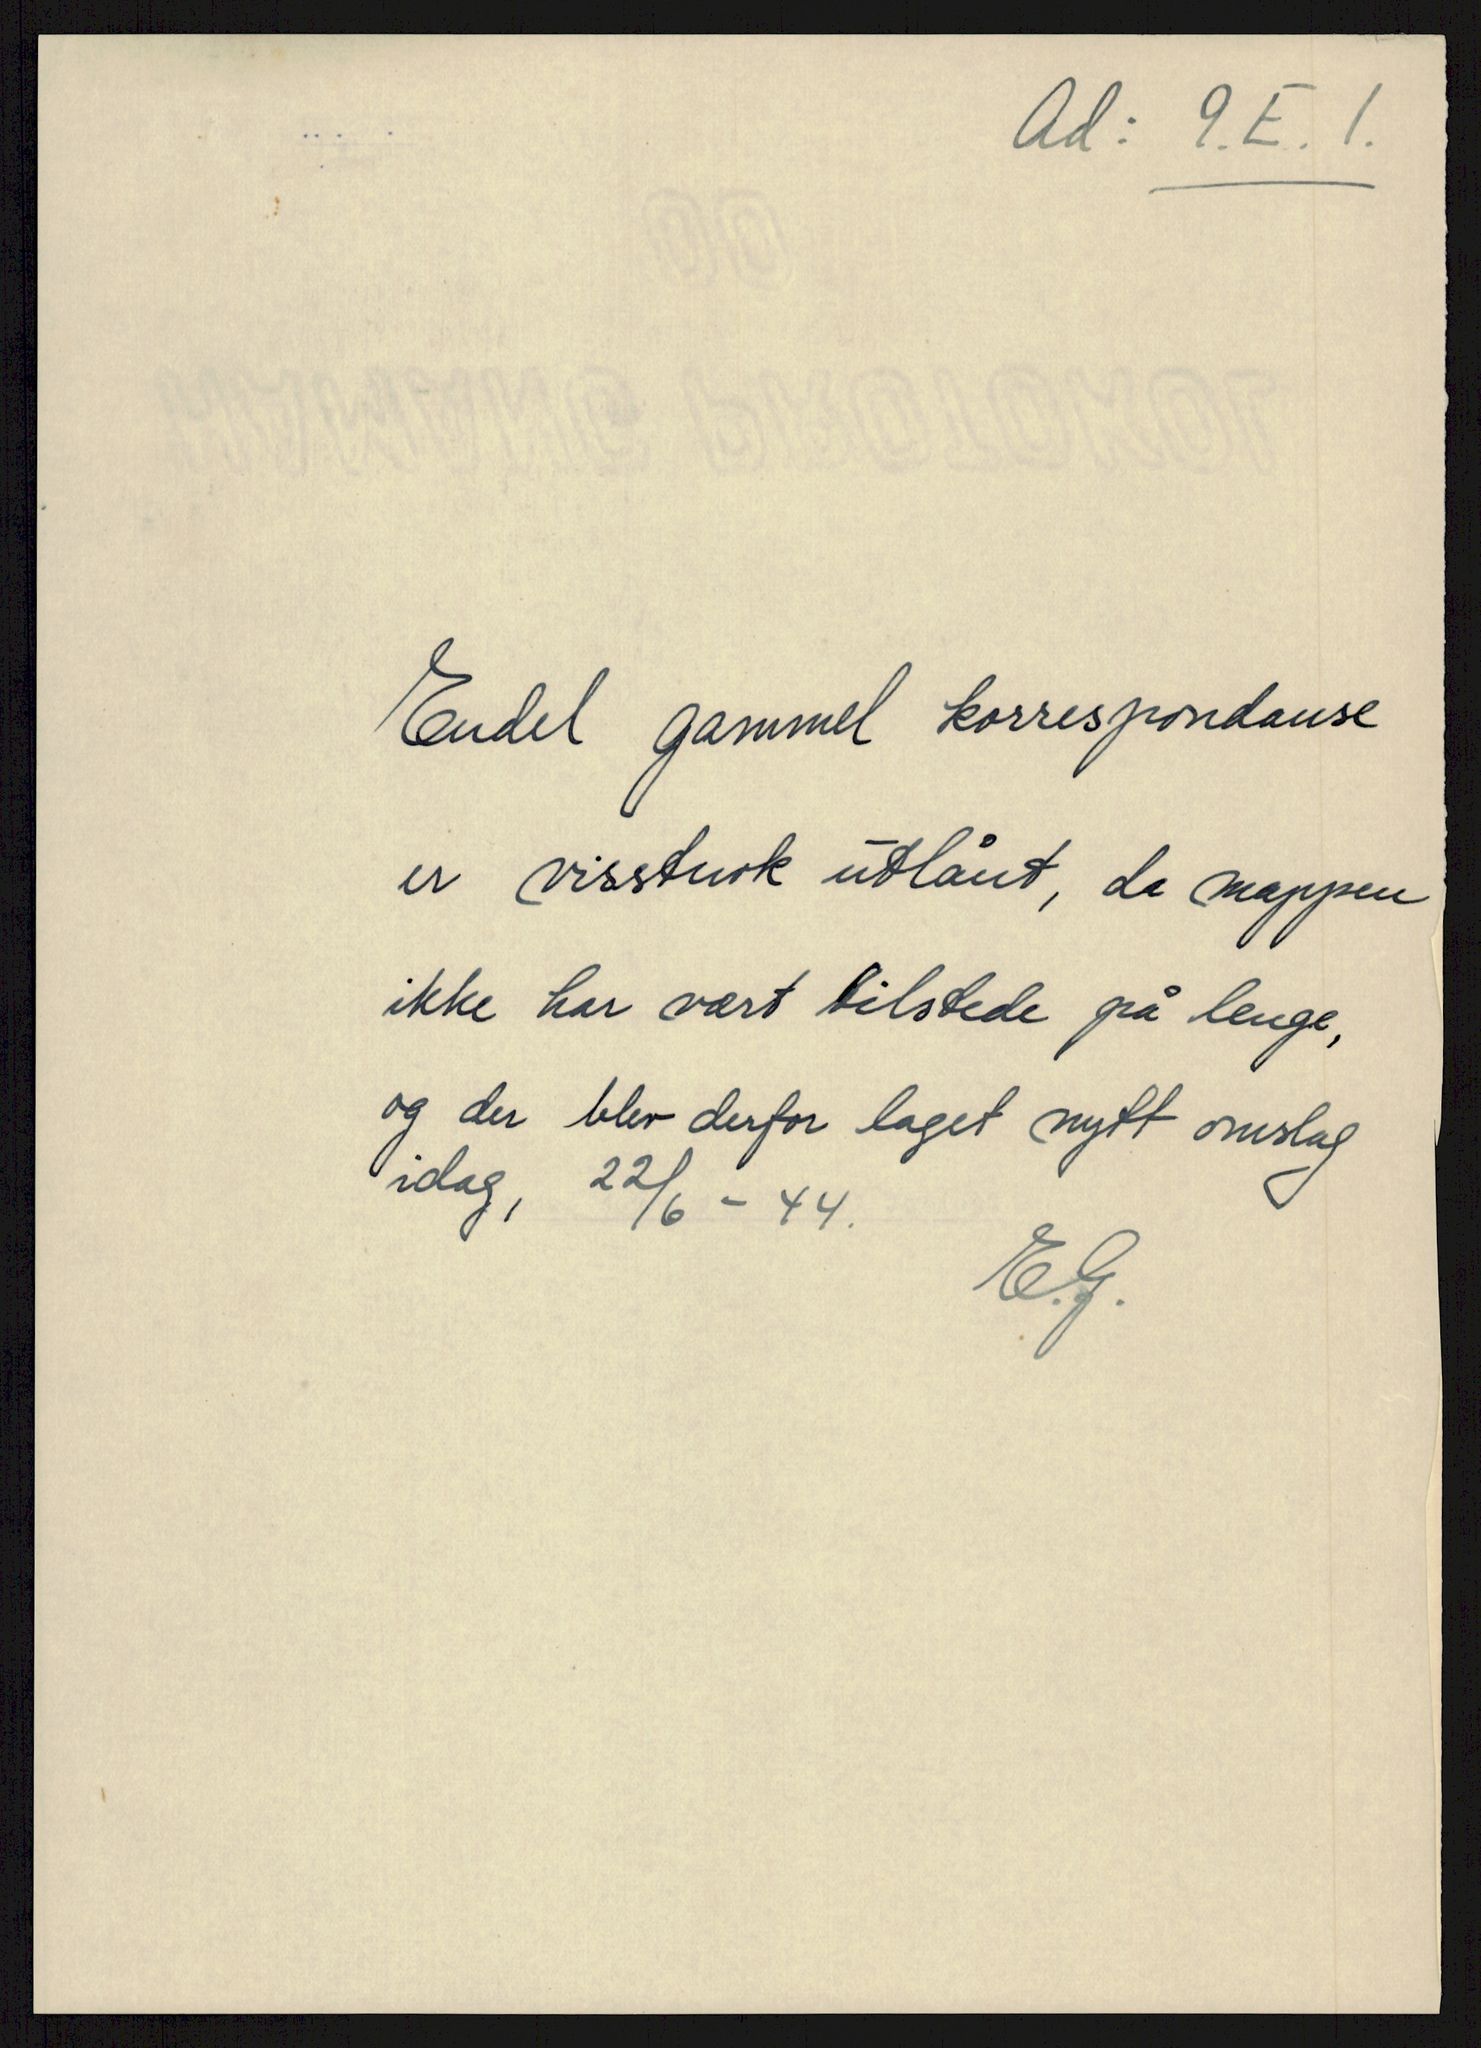 Ad: 9.E.1.
Endel gammel korrespondanse
er visstnok utlånt, da mappen
ikke har vært tilstede på lenge,
og der blev derfor laget nytt omslag
idag, 22/6 - 44.
E.G.